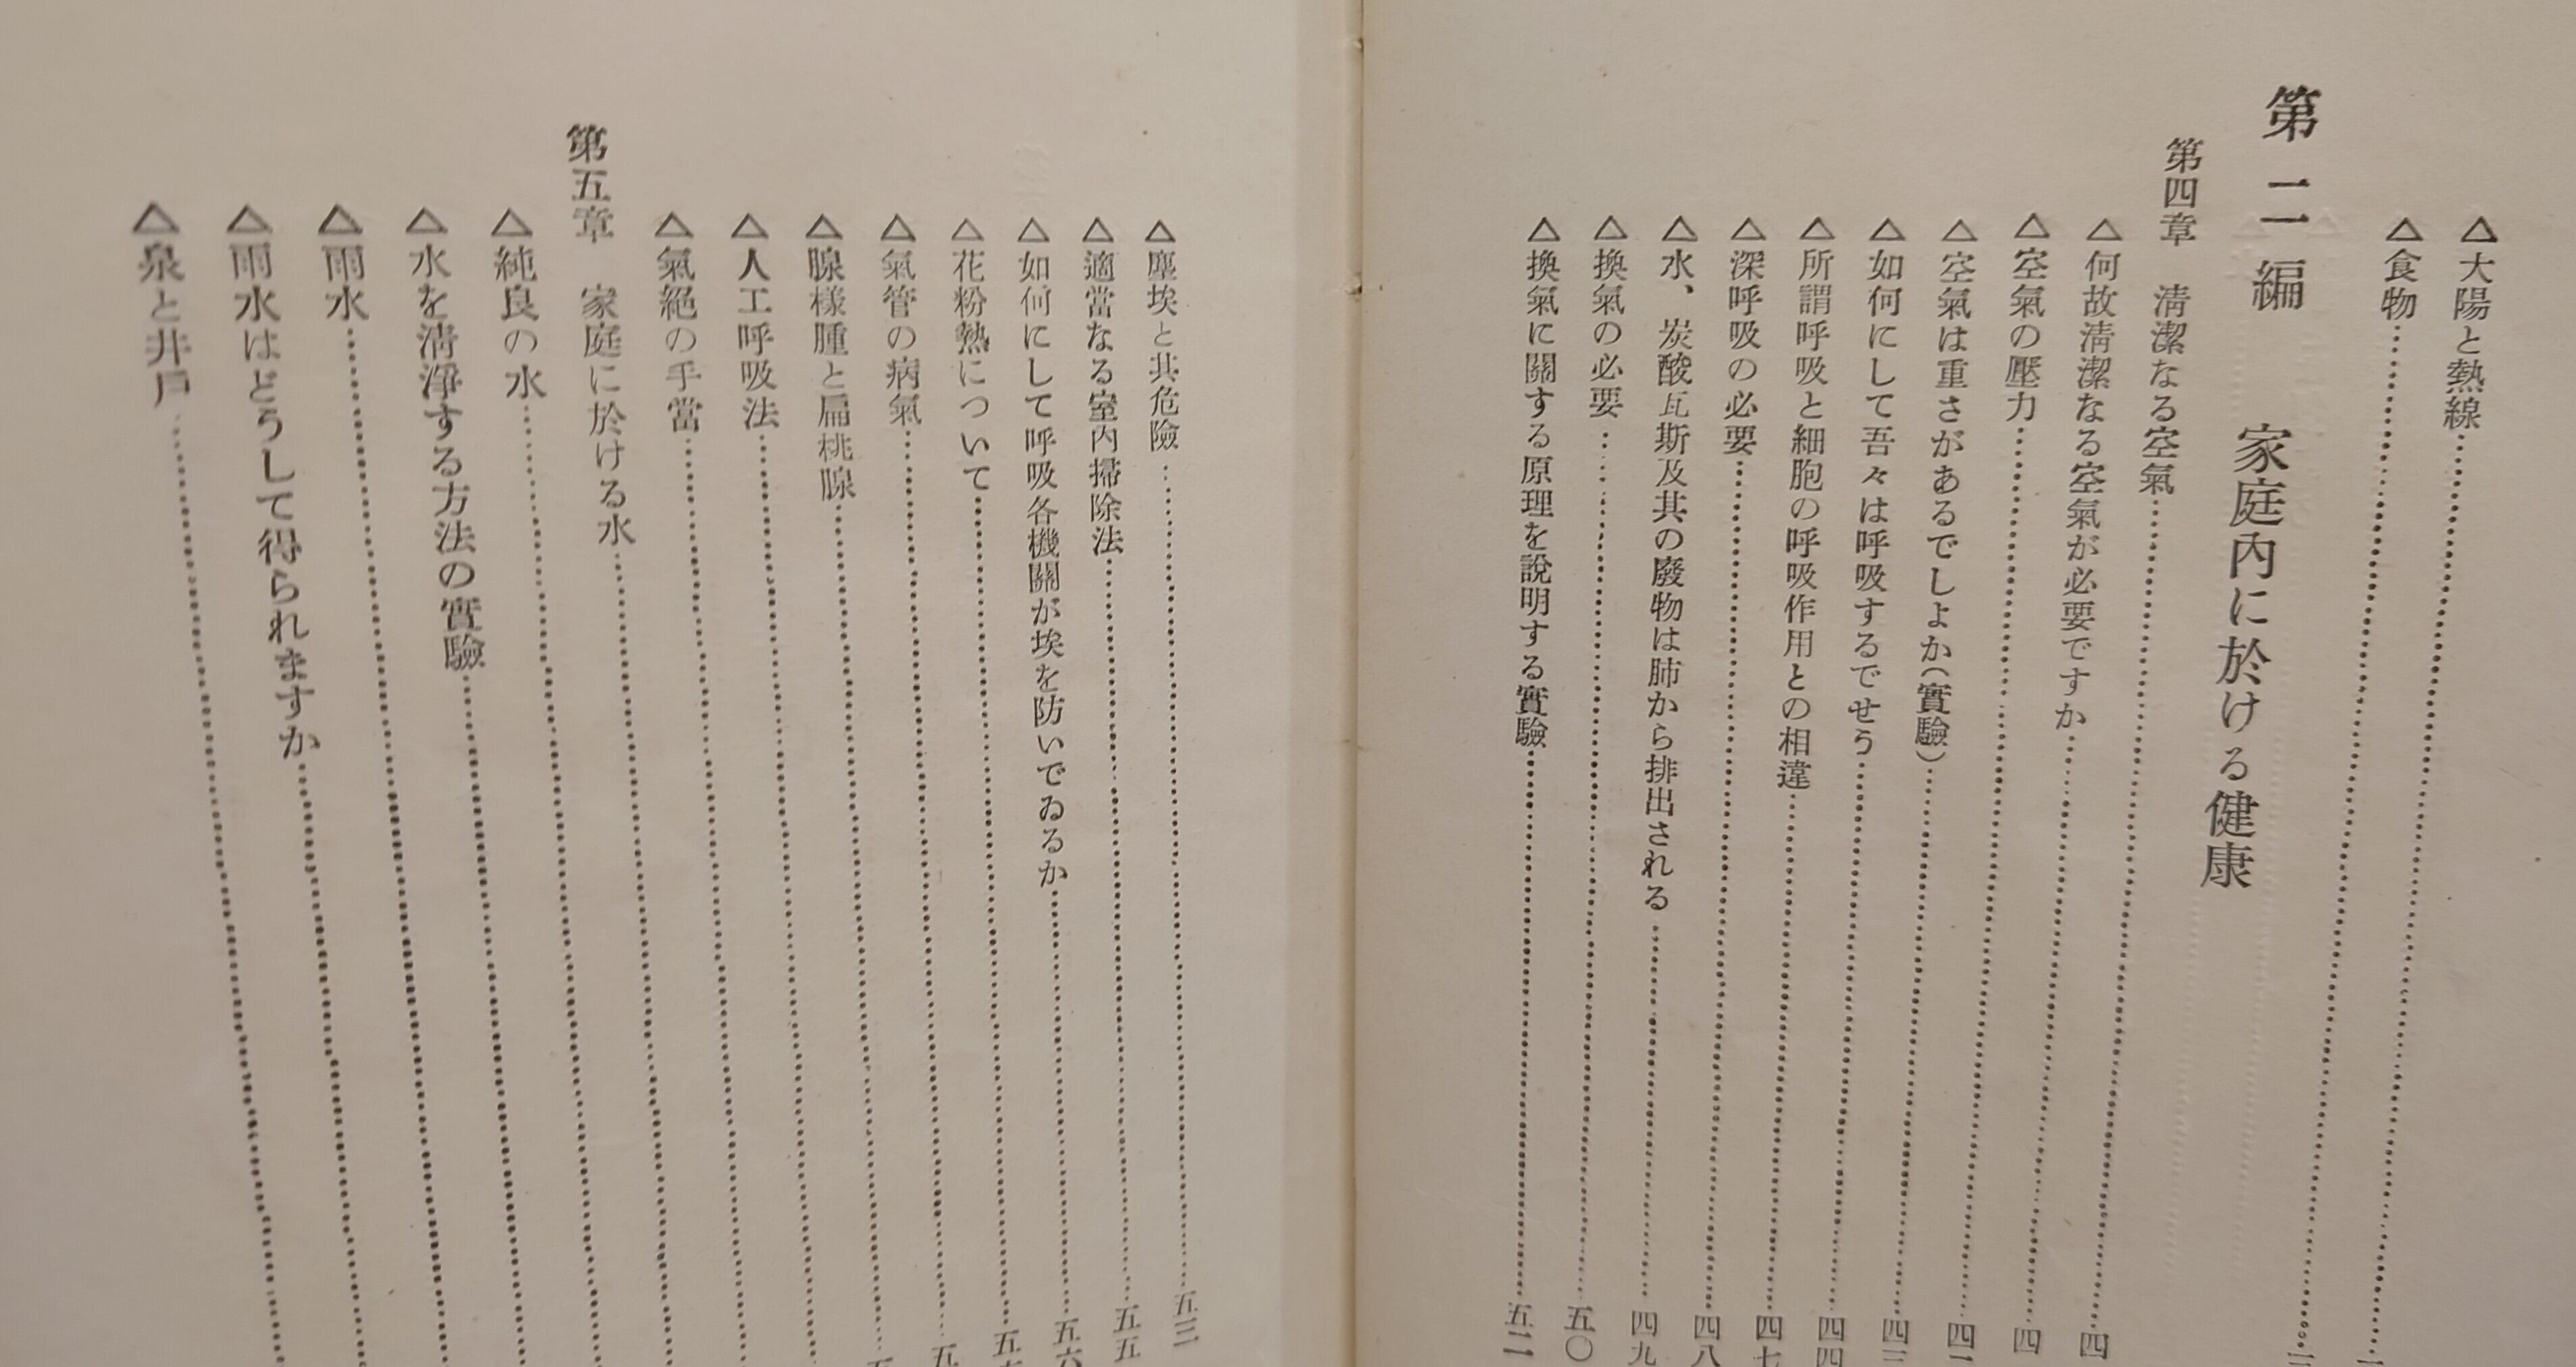 △大陽と熱線
△食物
第二編　家庭內に於ける健康
第四章　淸潔なる空氣
△何故淸潔なる空氣が必要ですか
△空氣の壓力
△空氣は重さがあるでしよか（實驗）
△如何にして吾々は呼吸するでせう
△所謂呼吸と細胞の呼吸作用との相違……四七
△深呼吸の必要……四八
△水、炭酸瓦斯及其の廢物は肺から排出される……四九
△換氣の必要……五〇
△換氣に關する原理を說明する實驗
△塵埃と其危險……五三
△適當なる室內掃除法……五五
△如何にして呼吸各機關が埃を防いでゐるか……五六
△花粉熱について
△氣管の病氣
△腺樣腫と扁桃腺
△人工呼吸法
△氣絕の手當
第五章　家庭に於ける水
△純良の水
△水を淸淨する方法の實驗
△雨水
△雨水はどうして得られますか
△泉と井戶